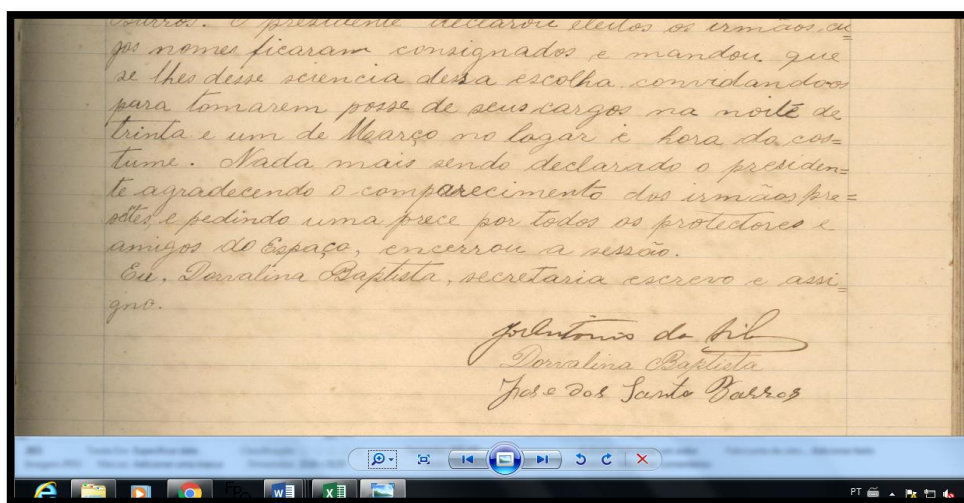 Barros. O presidente declarou eleitos os irmãos, cu=
jos nomes ficaram consignados e mandou que
se lhes desse sciencia dessa escolha convidando os
para tomarem posse de seus cargos na noite de
trinta e um de Março no logar e hora da cos=
tume. Nada mais sendo declarado o presiden=
te agradecendo o comparecimento dos irmãos pre=
e pedindo uma prece por todos os protectores e
amigos do Espaço, encerrou a sessão.
Eu, Dorvalina Baptista, secretaria escrevo e assi=
gno.
Antonio da Sil
Dorvalina Baptista
Jose dos Santo Barros
PT